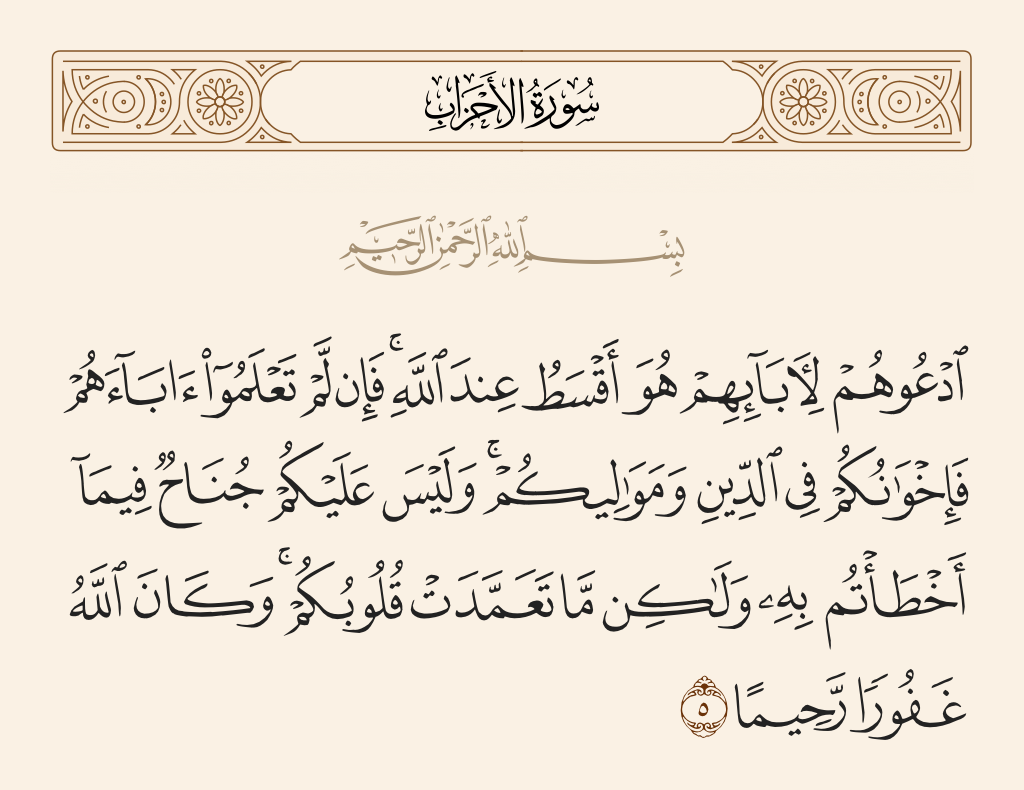 سُورَةُ الأَحْزَابِ
بِسْمِ ٱللَّهِ ٱلرَّحْمَٰنِ ٱلرَّحِيمِ
ٱدْعُوهُمْ لِـَٔابَآئِهِمْ هُوَ أَقْسَطُ عِندَ ٱللَّهِ ۚ فَإِن لَّمْ تَعْلَمُوٓا۟ ءَابَآءَهُمْ
فَإِخْوَٰنُكُمْ فِى ٱلدِّينِ وَمَوَٰلِيكُمْ ۚ وَلَيْسَ عَلَيْكُمْ جُنَاحٌ فِيمَآ
أَخْطَأْتُم بِهِۦ وَلَٰكِن مَّا تَعَمَّدَتْ قُلُوبُكُمْ ۚ وَكَانَ ٱللَّهُ
غَفُورًا رَّحِيمًا ٥